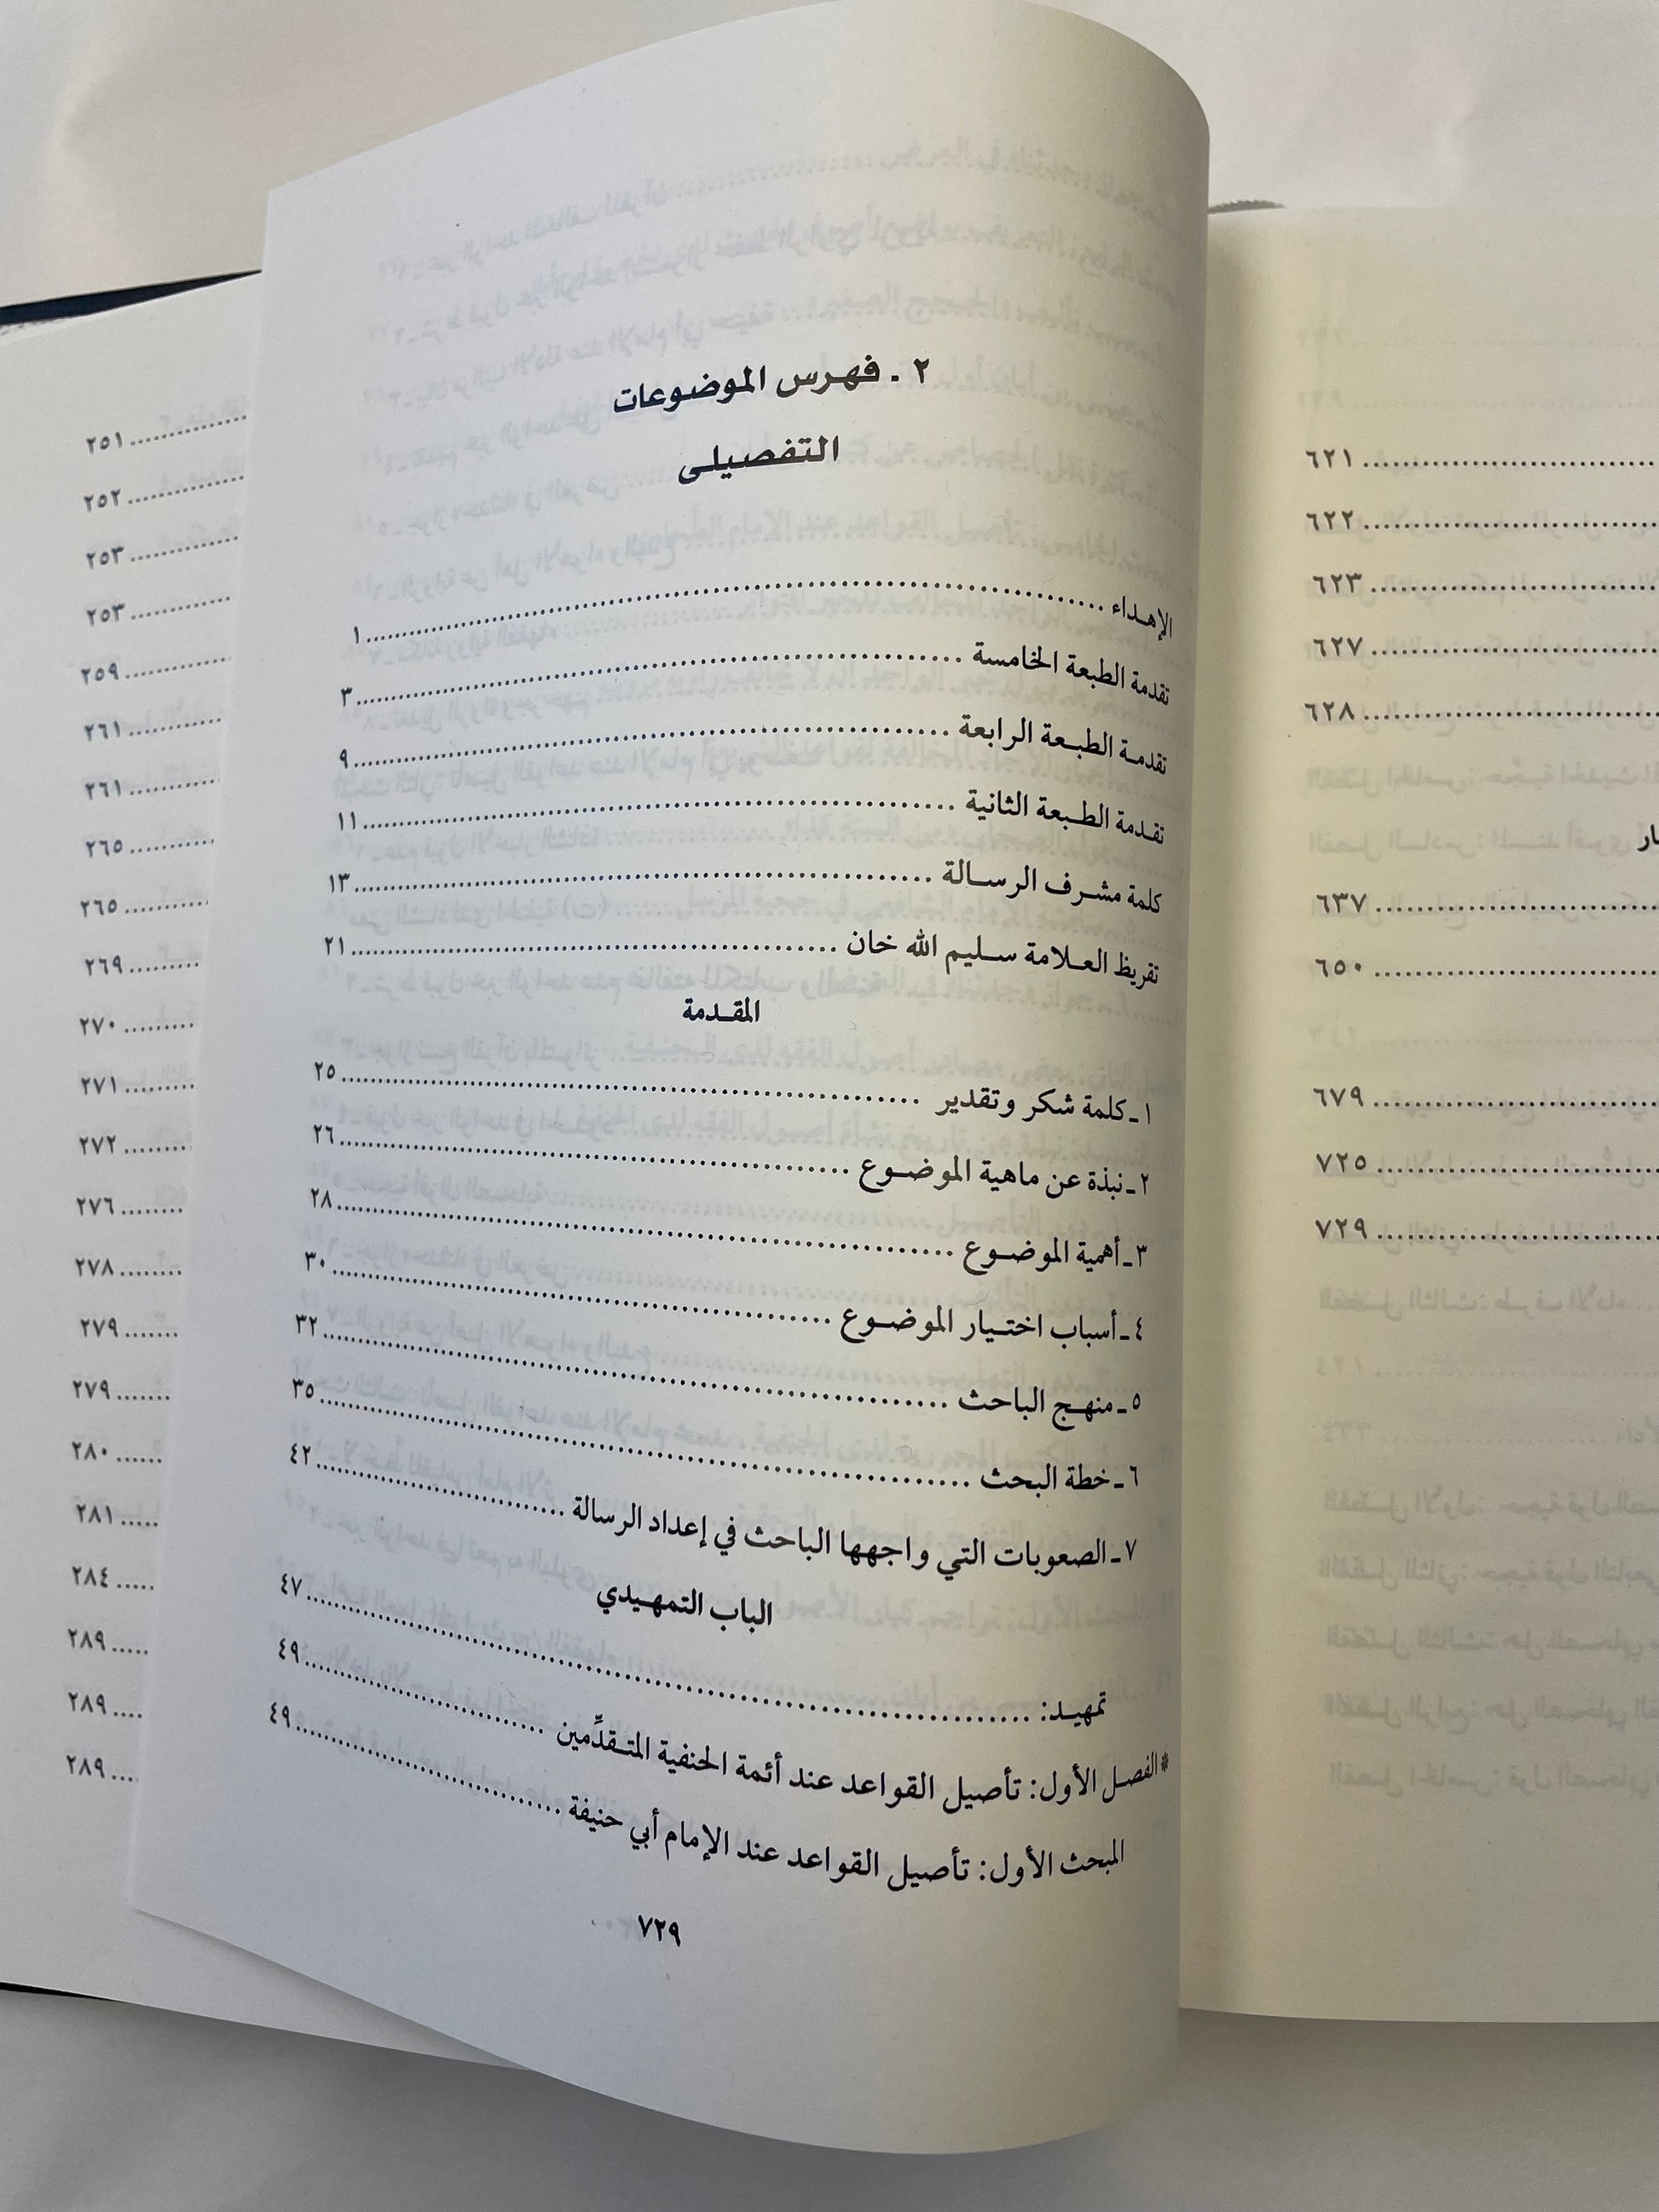 ٢ ـ فهرس الموضوعات
التفصيلى
الإهداء ........ ١
تقدمة الطبعة الخامسة ........ ٣
تقدمة الطبعة الرابعة ........ ٩
تقدمة الطبعة الثانية ........ ١١
كلمة مشرف الرسالة ........ ١٣
تقريظ العلامة سليم الله خان ........ ٢١
المقدمة
١ـ كلمة شكر وتقدير ........ ٢٥
٢ـ نبذة عن ماهية الموضوع ........ ٢٦
٣ـ أهمية الموضوع ........ ٢٨
٤ـ أسباب اختيار الموضوع ........ ٣٠
٥ـ منهج الباحث ........ ٣٢
٦ـ خطة البحث ........ ٣٥
٧ـ الصعوبات التي واجهها الباحث في إعداد الرسالة ........ ٤٢
الباب التمهيدي
تمهيد: ........ ٤٧
* الفصل الأول: تأصيل القواعد عند أئمة الحنفية المتقدِّمين ........ ٤٩
المبحث الأول: تأصيل القواعد عند الإمام أبي حنيفة ........ ٤٩
٧٢٩
........ ٦٢١
........ ٦٢٢
........ ٦٢٣
........ ٦٢٧
........ ٦٢٨
........ ٦٣٧
........ ٦٥٠
........ ٦٧٩
........ ٧٢٥
........ ٧٢٩
........ ٢٥١
........ ٢٥٢
........ ٢٥٣
........ ٢٥٣
........ ٢٥٩
........ ٢٦١
........ ٢٦١
........ ٢٦٥
........ ٢٦٥
........ ٢٦٩
........ ٢٧٠
........ ٢٧١
........ ٢٧٢
........ ٢٧٦
........ ٢٧٨
........ ٢٧٩
........ ٢٧٩
........ ٢٨٠
........ ٢٨١
........ ٢٨٤
........ ٢٨٩
........ ٢٨٩
........ ٢٨٩